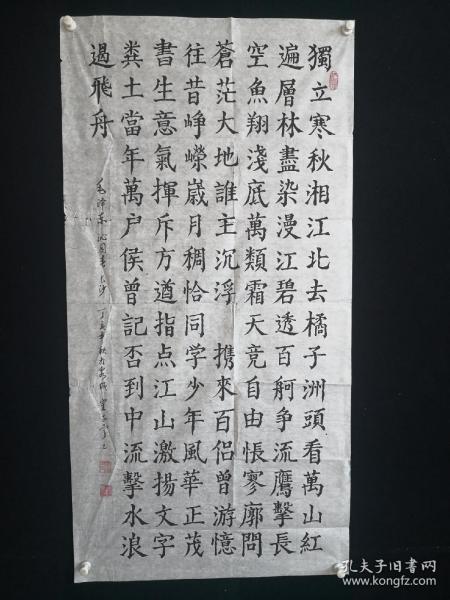 獨立寒秋湘江北去橘子洲頭看萬山紅
遍層林盡染漫江碧透百舸争流鷹擊長
空魚翔淺底萬類霜天竞自由悵寥廓問
蒼茫大地誰主沉浮 携來百侣曾游憶
往昔峥嶸嵗月稠恰同学少年風華正茂
書生意氣揮斥方遒指点江山激揚文字
粪土當年萬户侯曾記否到中流擊水浪
遏飛舟
毛泽东沁园春长沙 丁亥年秋
孔夫子旧书网
www.kongfz.com